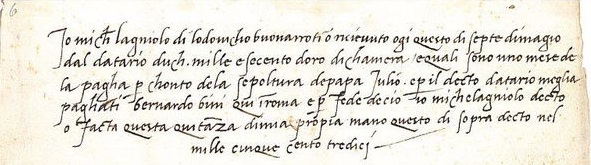 6
Io mich lagniolo di lodovicho buonarroti ò ricievuto ogi questo di septe di magio
dal datario duch. mille e secento doro di chamera e quali sono uno mese de
la pagha p chonto dela sepoltura de papa Julio. e p il decto datario me gli a
paghati bernardo bini qui i roma e p fede de ciò Io michelagniolo decto
o facta questa quitanza di mia propia mano questo di sopra decto nel
mille cinque cento tredici